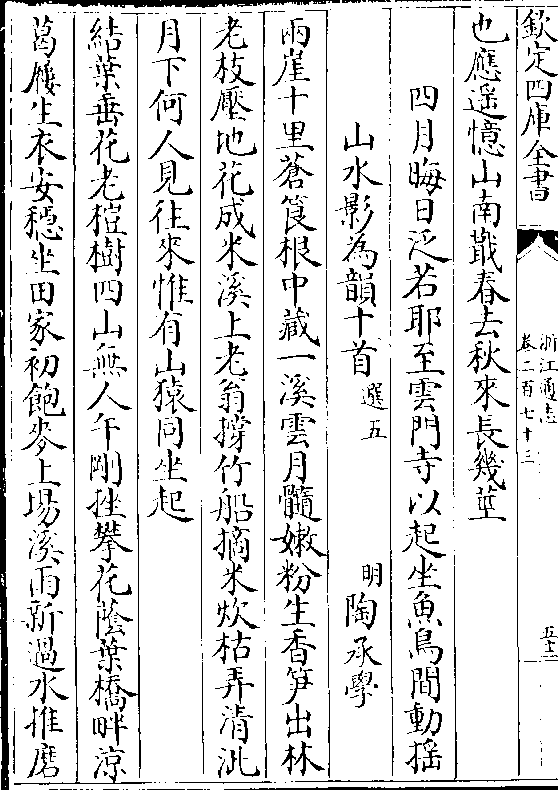 欽定四庫全書
浙江通志
卷二百七十三
五十二
也應遥憶山南戢春去秋來長幾莖
四月晦日泛若耶至雲門寺以起坐魚鳥間動揺
山水影為韻十首選五
明陶承學
兩崖十里蒼筤根中藏一溪雲月髓嫩粉生香笋出林
老枝壓地花成米溪上老翁撐竹船摘米炊枯弄清泚
月下何人見往來惟有山猿同坐起
結葉垂花老樹四山無人午剛挫攀花蔭葉橋畔涼
葛屨生衣安穏坐田家初飽麥上場溪雨新過水推磨